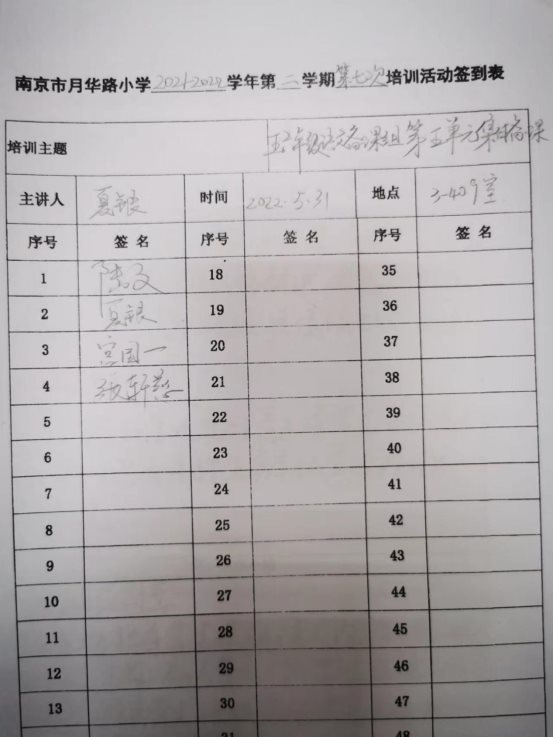 南京市月华路小学2021-2022学年第二学期第七次培训活动签到表
培训主题 五年级语文备课组第五单元集体备课
主讲人 夏银 时间 2022.5.31 地点 3-409室
序号 签名 序号 签名 序号 签名
1 陆文 18 35
2 夏银 19 36
3 宫国一 20 37
4 张轩慈 21 38
5 22 39
6 23 40
7 24 41
8 25 42
9 26 43
10 27 44
11 28 45
12 29 46
13 30 47
31 48